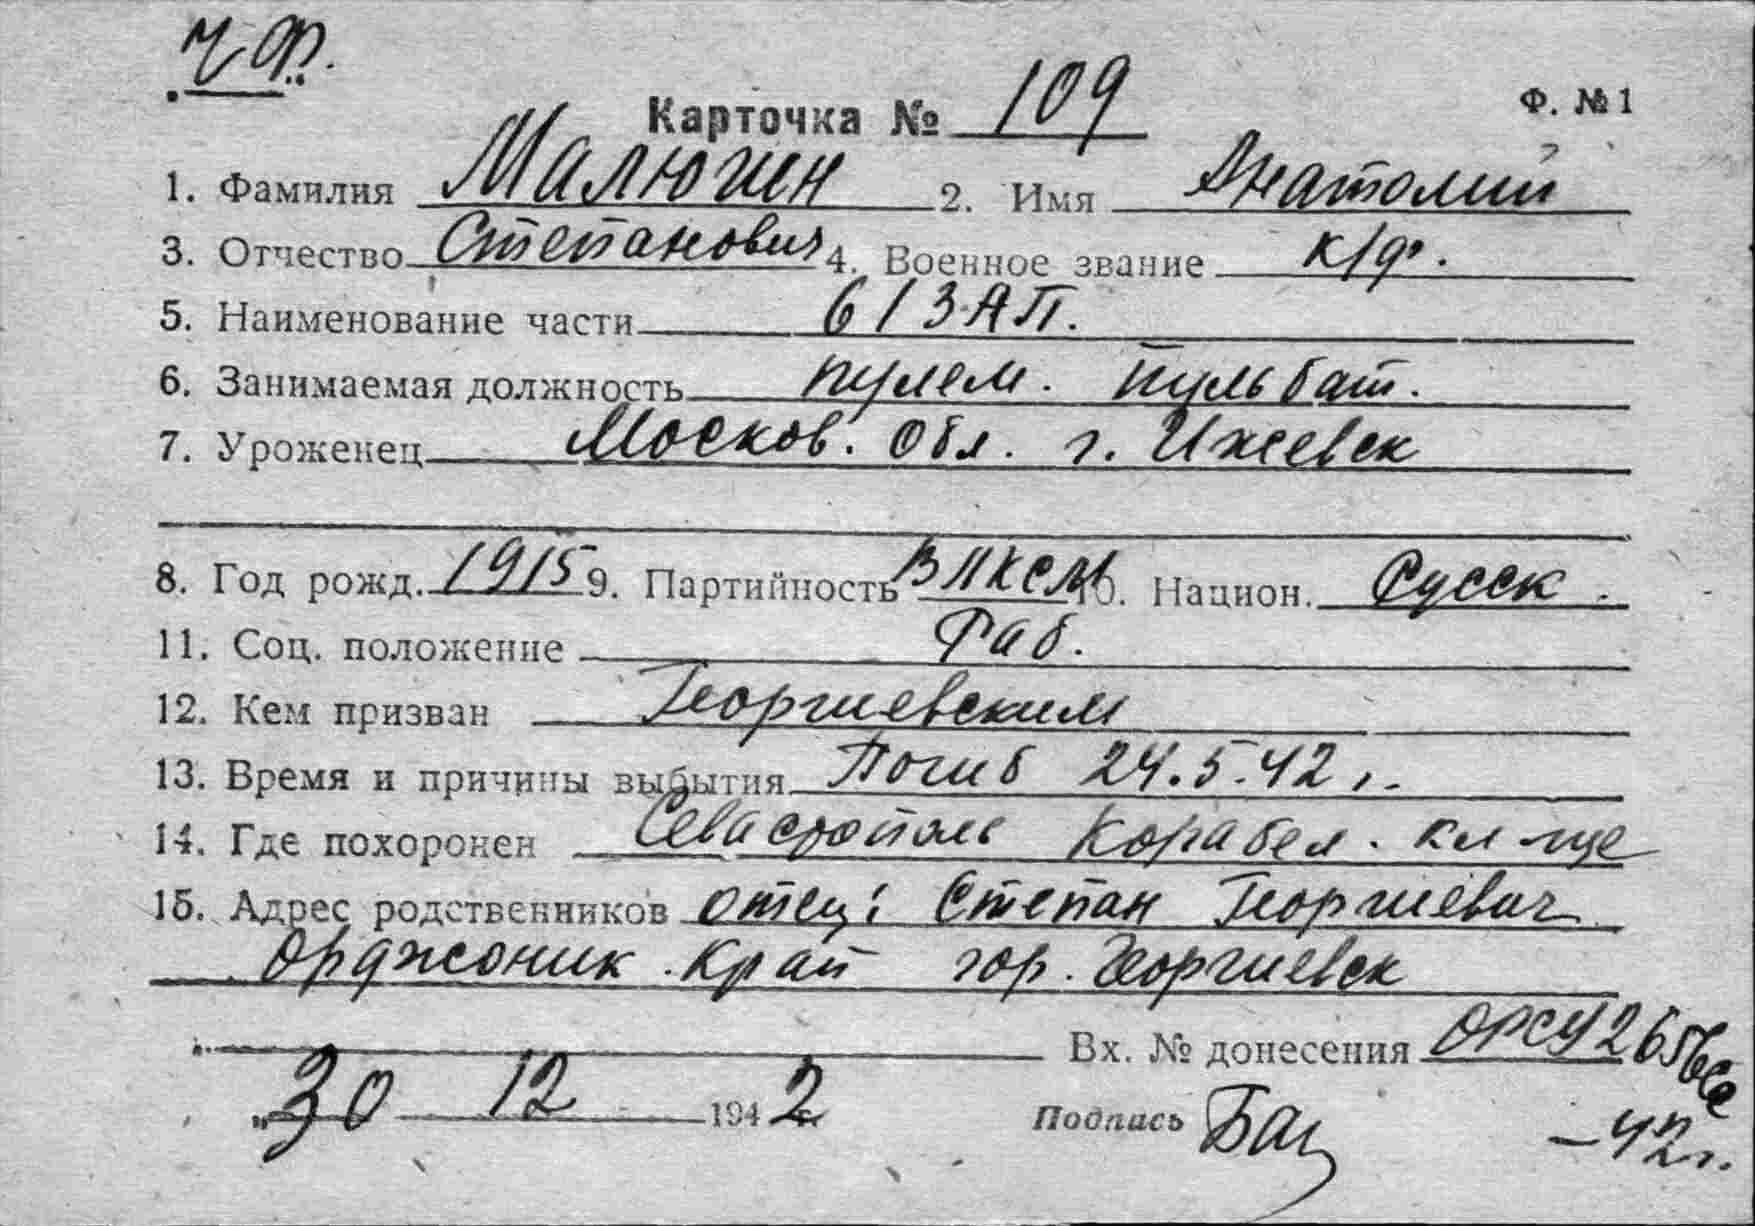 Ч.Ф.
Карточка № 109
Ф. № 1
1. Фамилия Малюгин 2. Имя Анатолий
3. Отчество Степанович 4. Военное звание к/ф.
5. Наименование части 61 ЗАП.
6. Занимаемая должность пулем. пульбат.
7. Уроженец Москов. обл. г. Ижевск
8. Год рожд. 1915 9. Партийность ВЛКСМ 10. Национ. Русск.
11. Соц. положение Раб.
12. Кем призван Георгиевским
13. Время и причины выбытия Погиб 24.5.42 г.
14. Где похоронен Севастополь Корабел. кл-ще
15. Адрес родственников отец: Степан Георгиевич
Орджоник. край гор. Георгиевск
Вх. № донесения ОРСУ 2656сс
"30 12 1942 Подпись -42г.